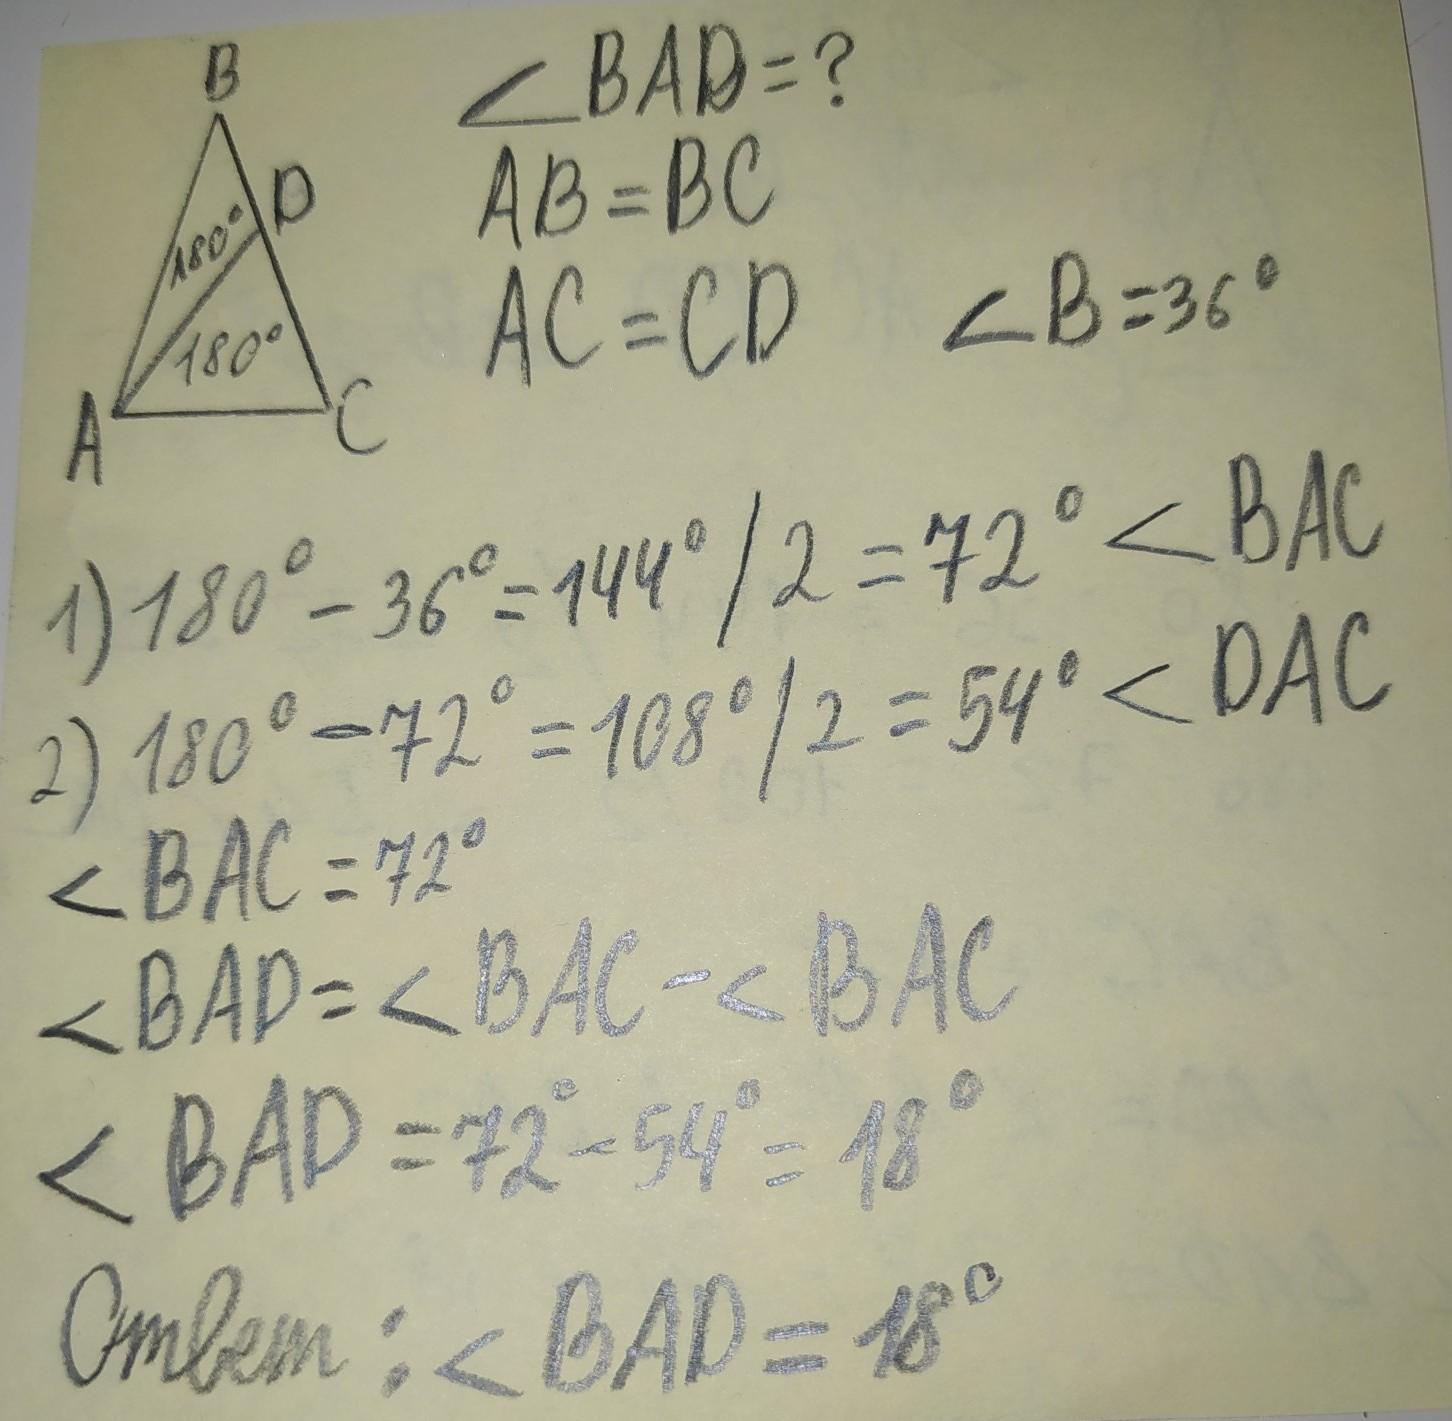 B
D
180°
180°
A
C
<BAD=?
AB=BC
AC=CD <B=36°
1) 180°-36°=144°/2=72° <BAC
2) 180°-72°=108°/2=54° <DAC
<BAC=72°
<BAD=<BAC-<BAC
<BAD=72°-54°=18°
Ответ: <BAD=18°